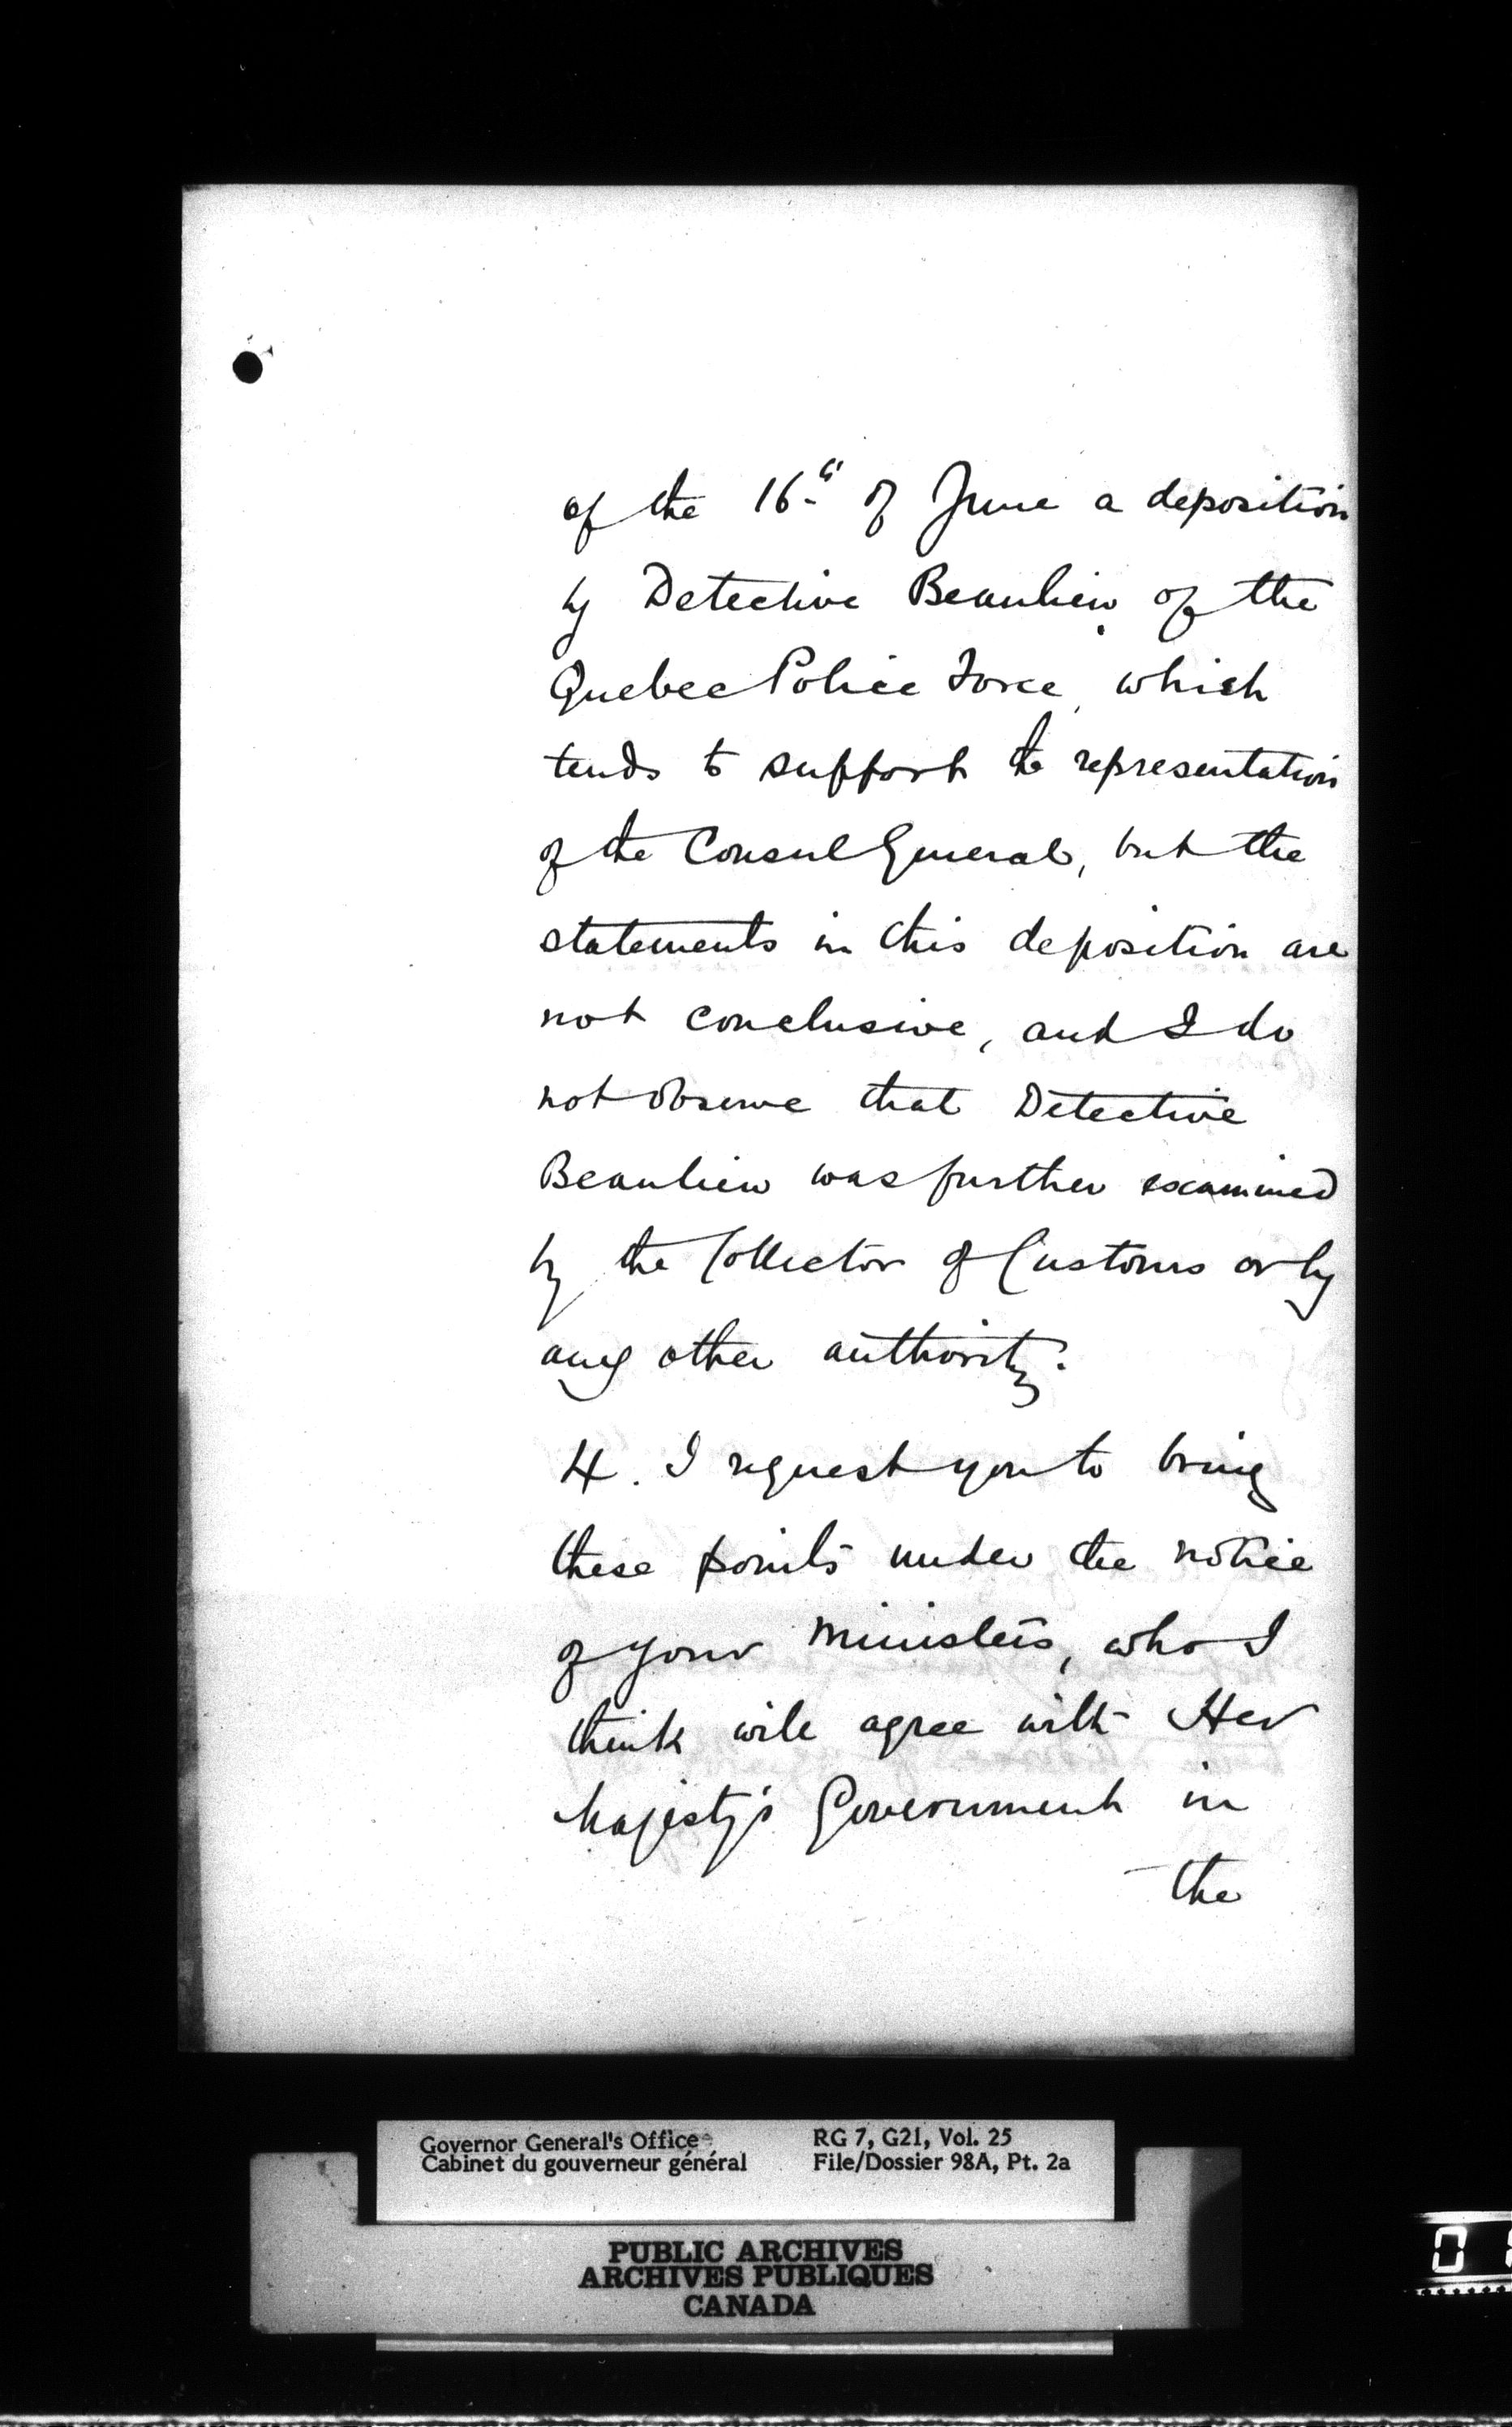 of the 16th of June a deposition
by Detective Beaulieu of the
Quebec Police Force, which
tends to support the representation
of the Consul General, but the
statements in this deposition are
not conclusive, and I do
not observe that Detective
Beaulieu was further examined
by the Collector of Customs or by
any other authority.
4. I request you to bring
these points under the notice
of your Ministers, who I
think will agree with Her
Majesty's Government in
the
Governor General's Office
Cabinet du gouverneur général
RG 7, G21, Vol. 25
File/Dossier 98A, Pt. 2a
PUBLIC ARCHIVES
ARCHIVES PUBLIQUES
CANADA